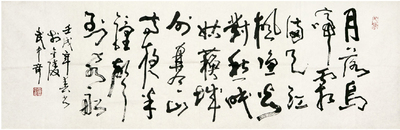 月落烏
啼霜
滿天江
楓漁火
對愁眠
姑蘇城
外寒山
寺夜半
鐘聲
到客船
壬戌年
於金陵
武中奇